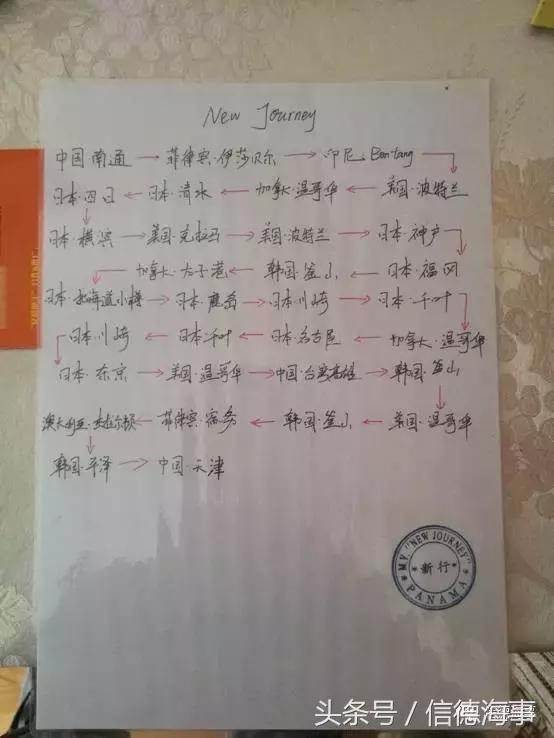 New Journey
中国·南通 → 菲律宾·伊莎贝尔 → 印尼·Bontang
日本·四日 ← 日本·清水 ← 加拿大·温哥华 ← 美国·波特兰
日本·横滨 → 美国·克拉马 → 美国·波特兰 → 日本·神户
加拿大·太子港 ← 韩国·釜山 ← 日本·福冈
日本·北海道小樽 → 日本·鹿岛 → 日本川崎 → 日本·千叶
日本川崎 ← 日本千叶 ← 日本·名古屋 ← 加拿大·温哥华
日本·东京 → 美国·温哥华 → 中国·台湾高雄 → 韩国·釜山
澳大利亚·杰拉尔顿 ← 菲律宾·宿务 ← 韩国·釜山 ← 美国·温哥华
韩国·平泽 → 中国·天津
MV. "NEW JOURNEY"
新行
PANAMA
头条号/信德海事